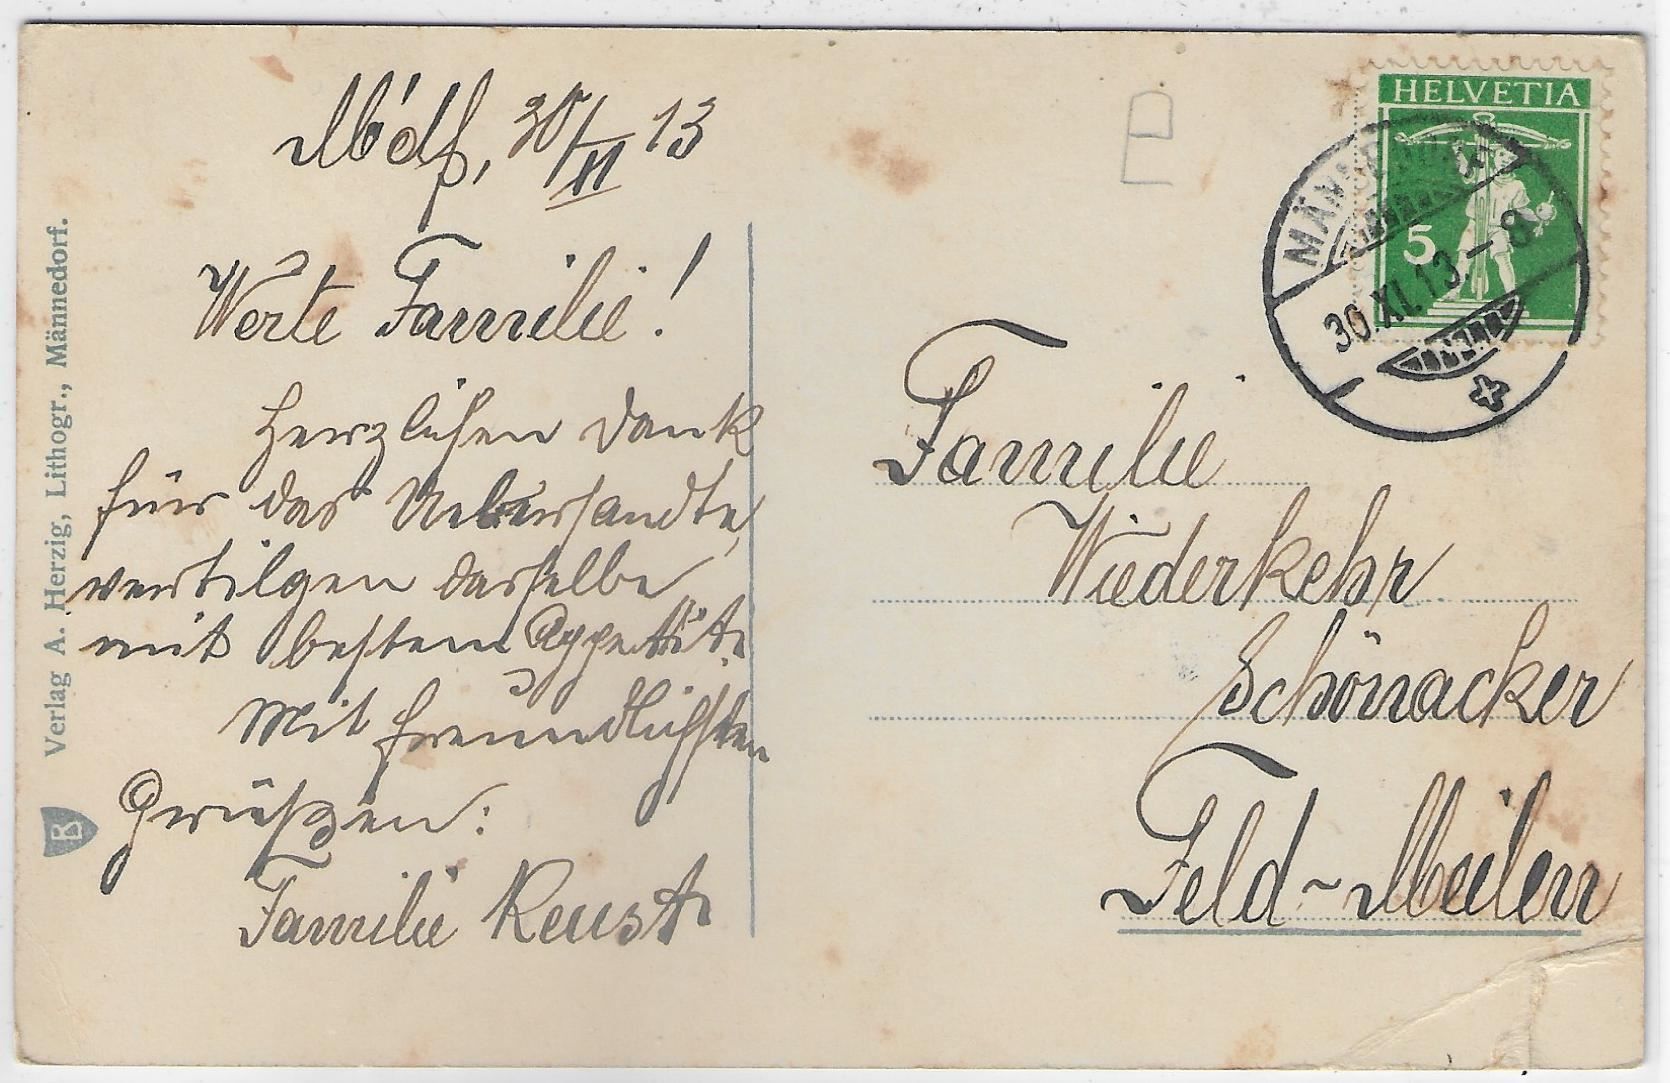 M'df, 30/XI 13
Werte Familie!
Herzlichen Dank
für das Uebersandte,
vertilgen dasselbe
mit bestem Appettit.
Mit freundlichsten
Grüßen:
Familie Reust
Verlag A. Herzig, Lithogr., Männedorf.
B
E
HELVETIA
5
MÄNNEDORF
30.XI.13.–8
Familie
Wiederkehr
Schönacker
Feld-Meilen